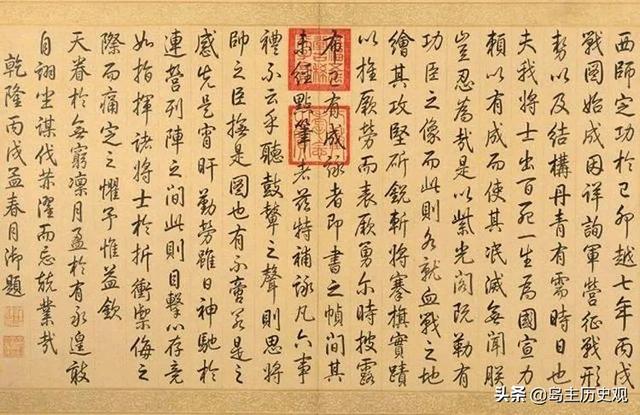 西師定功於己卯越七年丙戌
戰圖始成因詳詢軍營征戰形
勢以及結構丹青有需時日也
夫我將士出百死一生為國宣力
賴以有成而使其泯滅無聞朕
豈忍為哉是以紫光閣既勒有
功臣之像而此則各就血戰之地
繪其攻堅斫銳斬將搴旗實蹟
以推厥勞而表厥勇尔時披露
布已有成詠者即書之幀間其
未經點筆者茲特補詠凡六事
禮不云乎聽鼓鼙之聲則思將
帥之臣撫是圖也有不啻若是之
感先是宵旰勤勞雖日神馳於
連營列陣之間此則目擊心存竟
如指揮諸將士於折衝禦侮之
際而痛定之懼予惟益欽
天眷於無窮凜月盈於有永遑敢
自詡坐謀伐濯而忘兢業哉
乾隆丙戌孟春月御題
头条 @岛主历史观